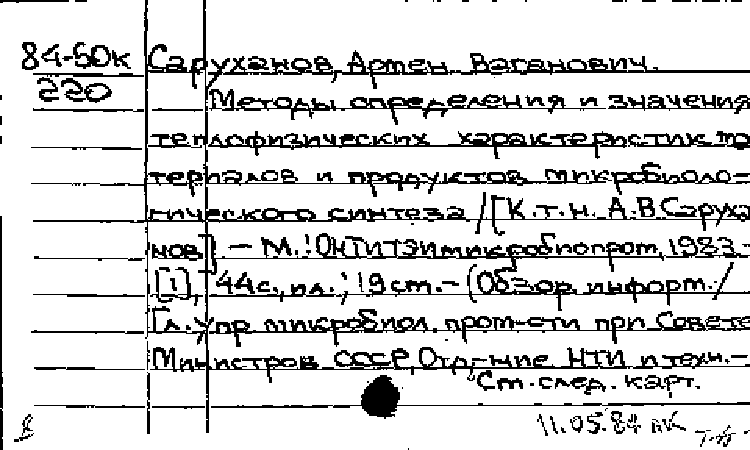 84-50к Саруханов, Артем Ваганович.
220 Методы определения и значения
теплофизических характеристик ма
териалов и продуктов микробиоло-
гического синтеза / [К.т.н. А.В. Саруха
нов]. – М.: ОНТИТЭИмикробиопром, 1983.-
[1], 44с., ил.; 19 см.- (Обзор. информ. /
Гл. упр. микробиол. пром-сти при Совете
Министров СССР, Отд-ние НТИ и техн.-
См. след. карт.
11.05.84